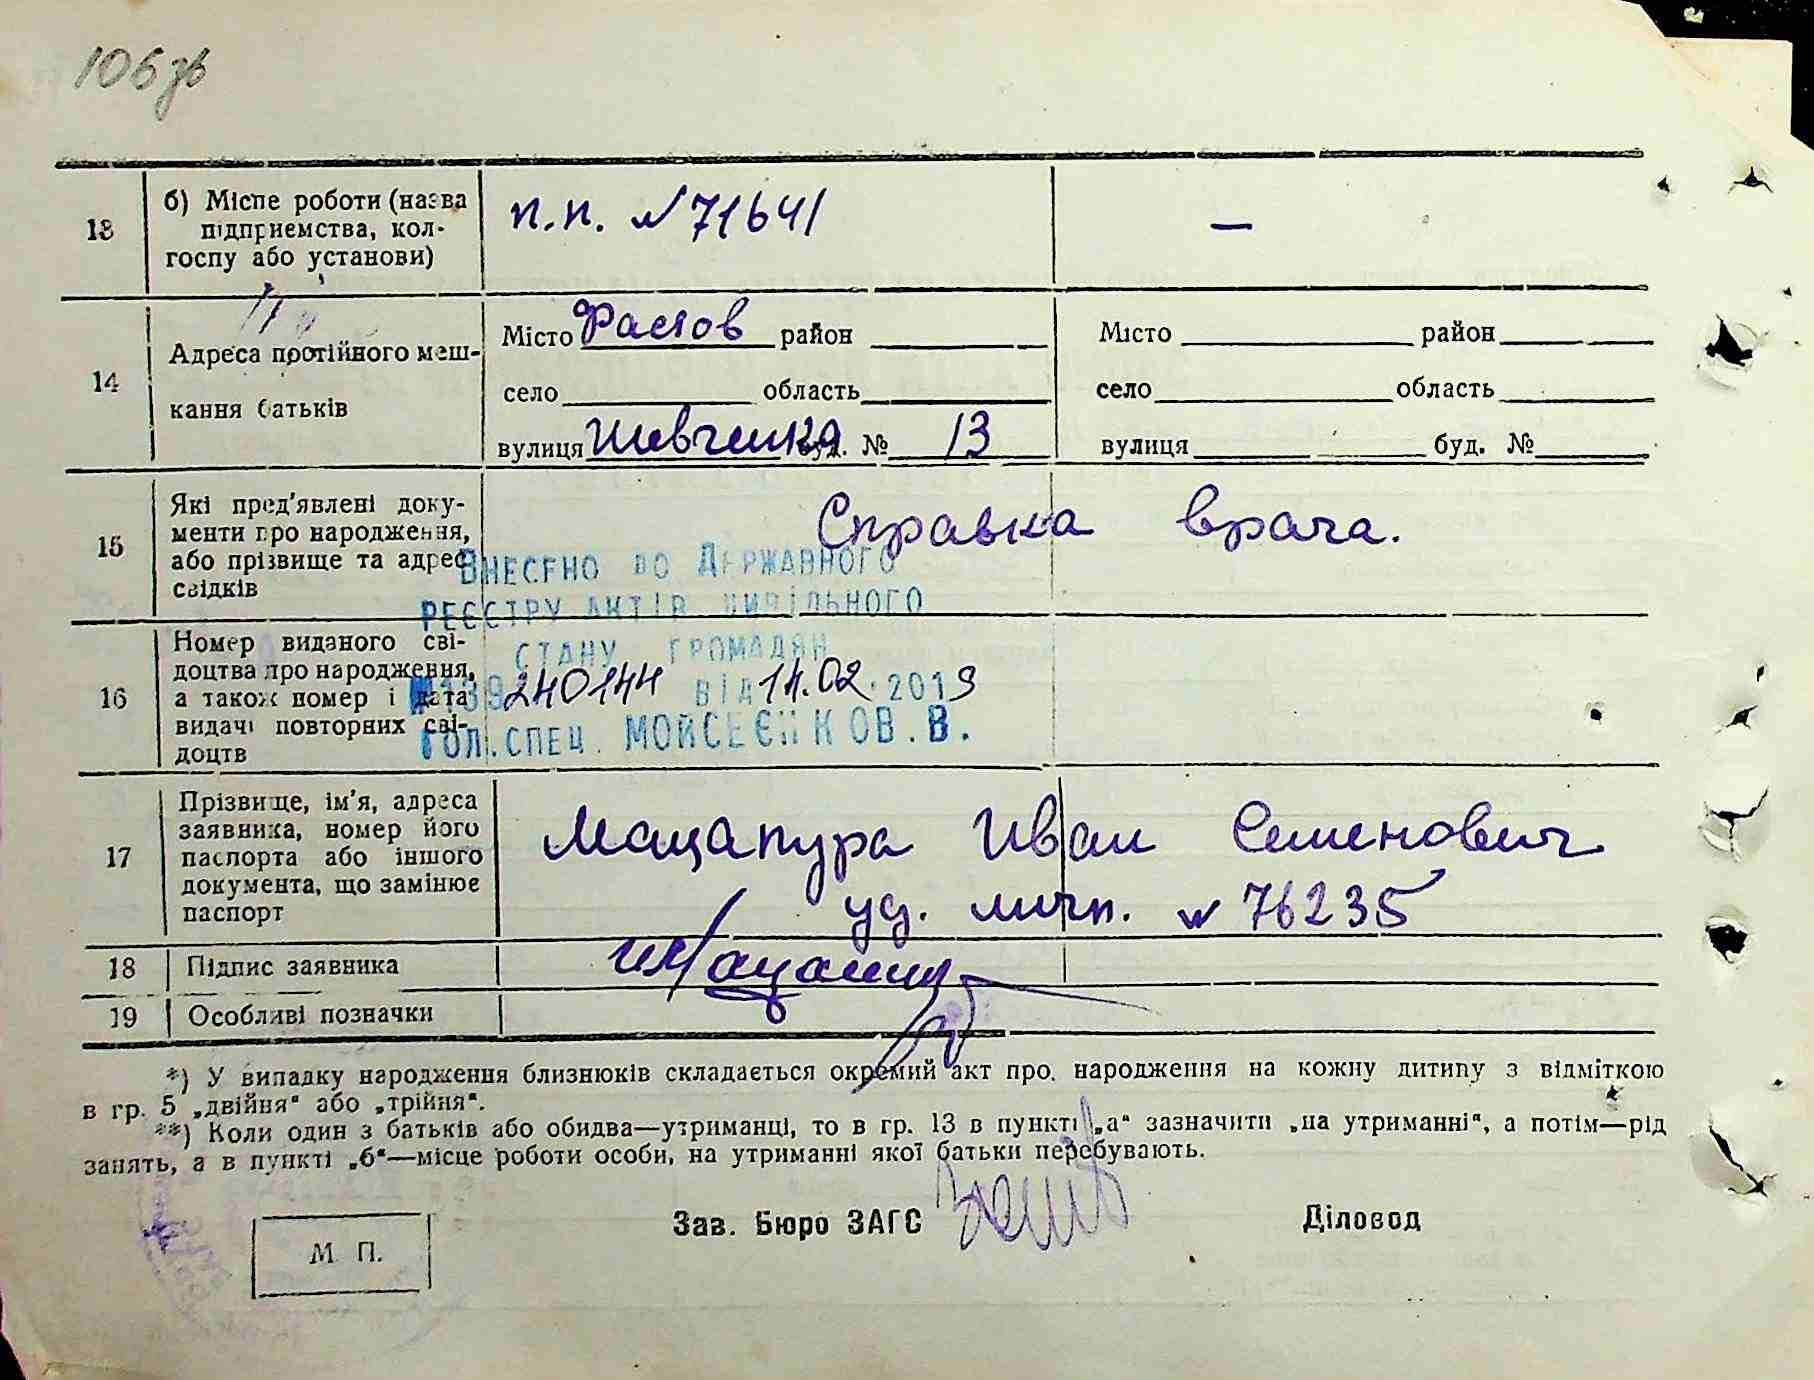 106 зв
13 б) Місце роботи (назва підприємства, колгоспу або установи) п.п. №71641 —
14 Адреса протійного мешкання батьків
Місто Фастов район Місто район
село область село область
вулиця Шевченка буд. № 13 вулиця буд. №
15 Які пред'явлені документи про народження, або прізвище та адрес свідків Справка врача.
Внесено до Державного
реєстру актів цивільного
стану громадян
240144 від 14.02.2019
Гол.спец. Мойсеєнко В.В.
16 Номер виданого свідоцтва про народження, а також номер і дата видачі повторних свідоцтв
17 Прізвище, ім'я, адреса заявника, номер його паспорта або іншого документа, що замінює паспорт
Мацапура Иван Семенович
уд. личн. № 76235
18 Підпис заявника
19 Особливі позначки
*) У випадку народження близнюків складається окремий акт про народження на кожну дитину з відміткою
в гр. 5 „двійня" або „трійня".
**) Коли один з батьків або обидва—утриманці, то в гр. 13 в пункті „а" зазначити „на утриманні", а потім—рід
занять, а в пункті „б"—місце роботи особи, на утриманні якої батьки перебувають.
Зав. Бюро ЗАГС Діловод
М П.